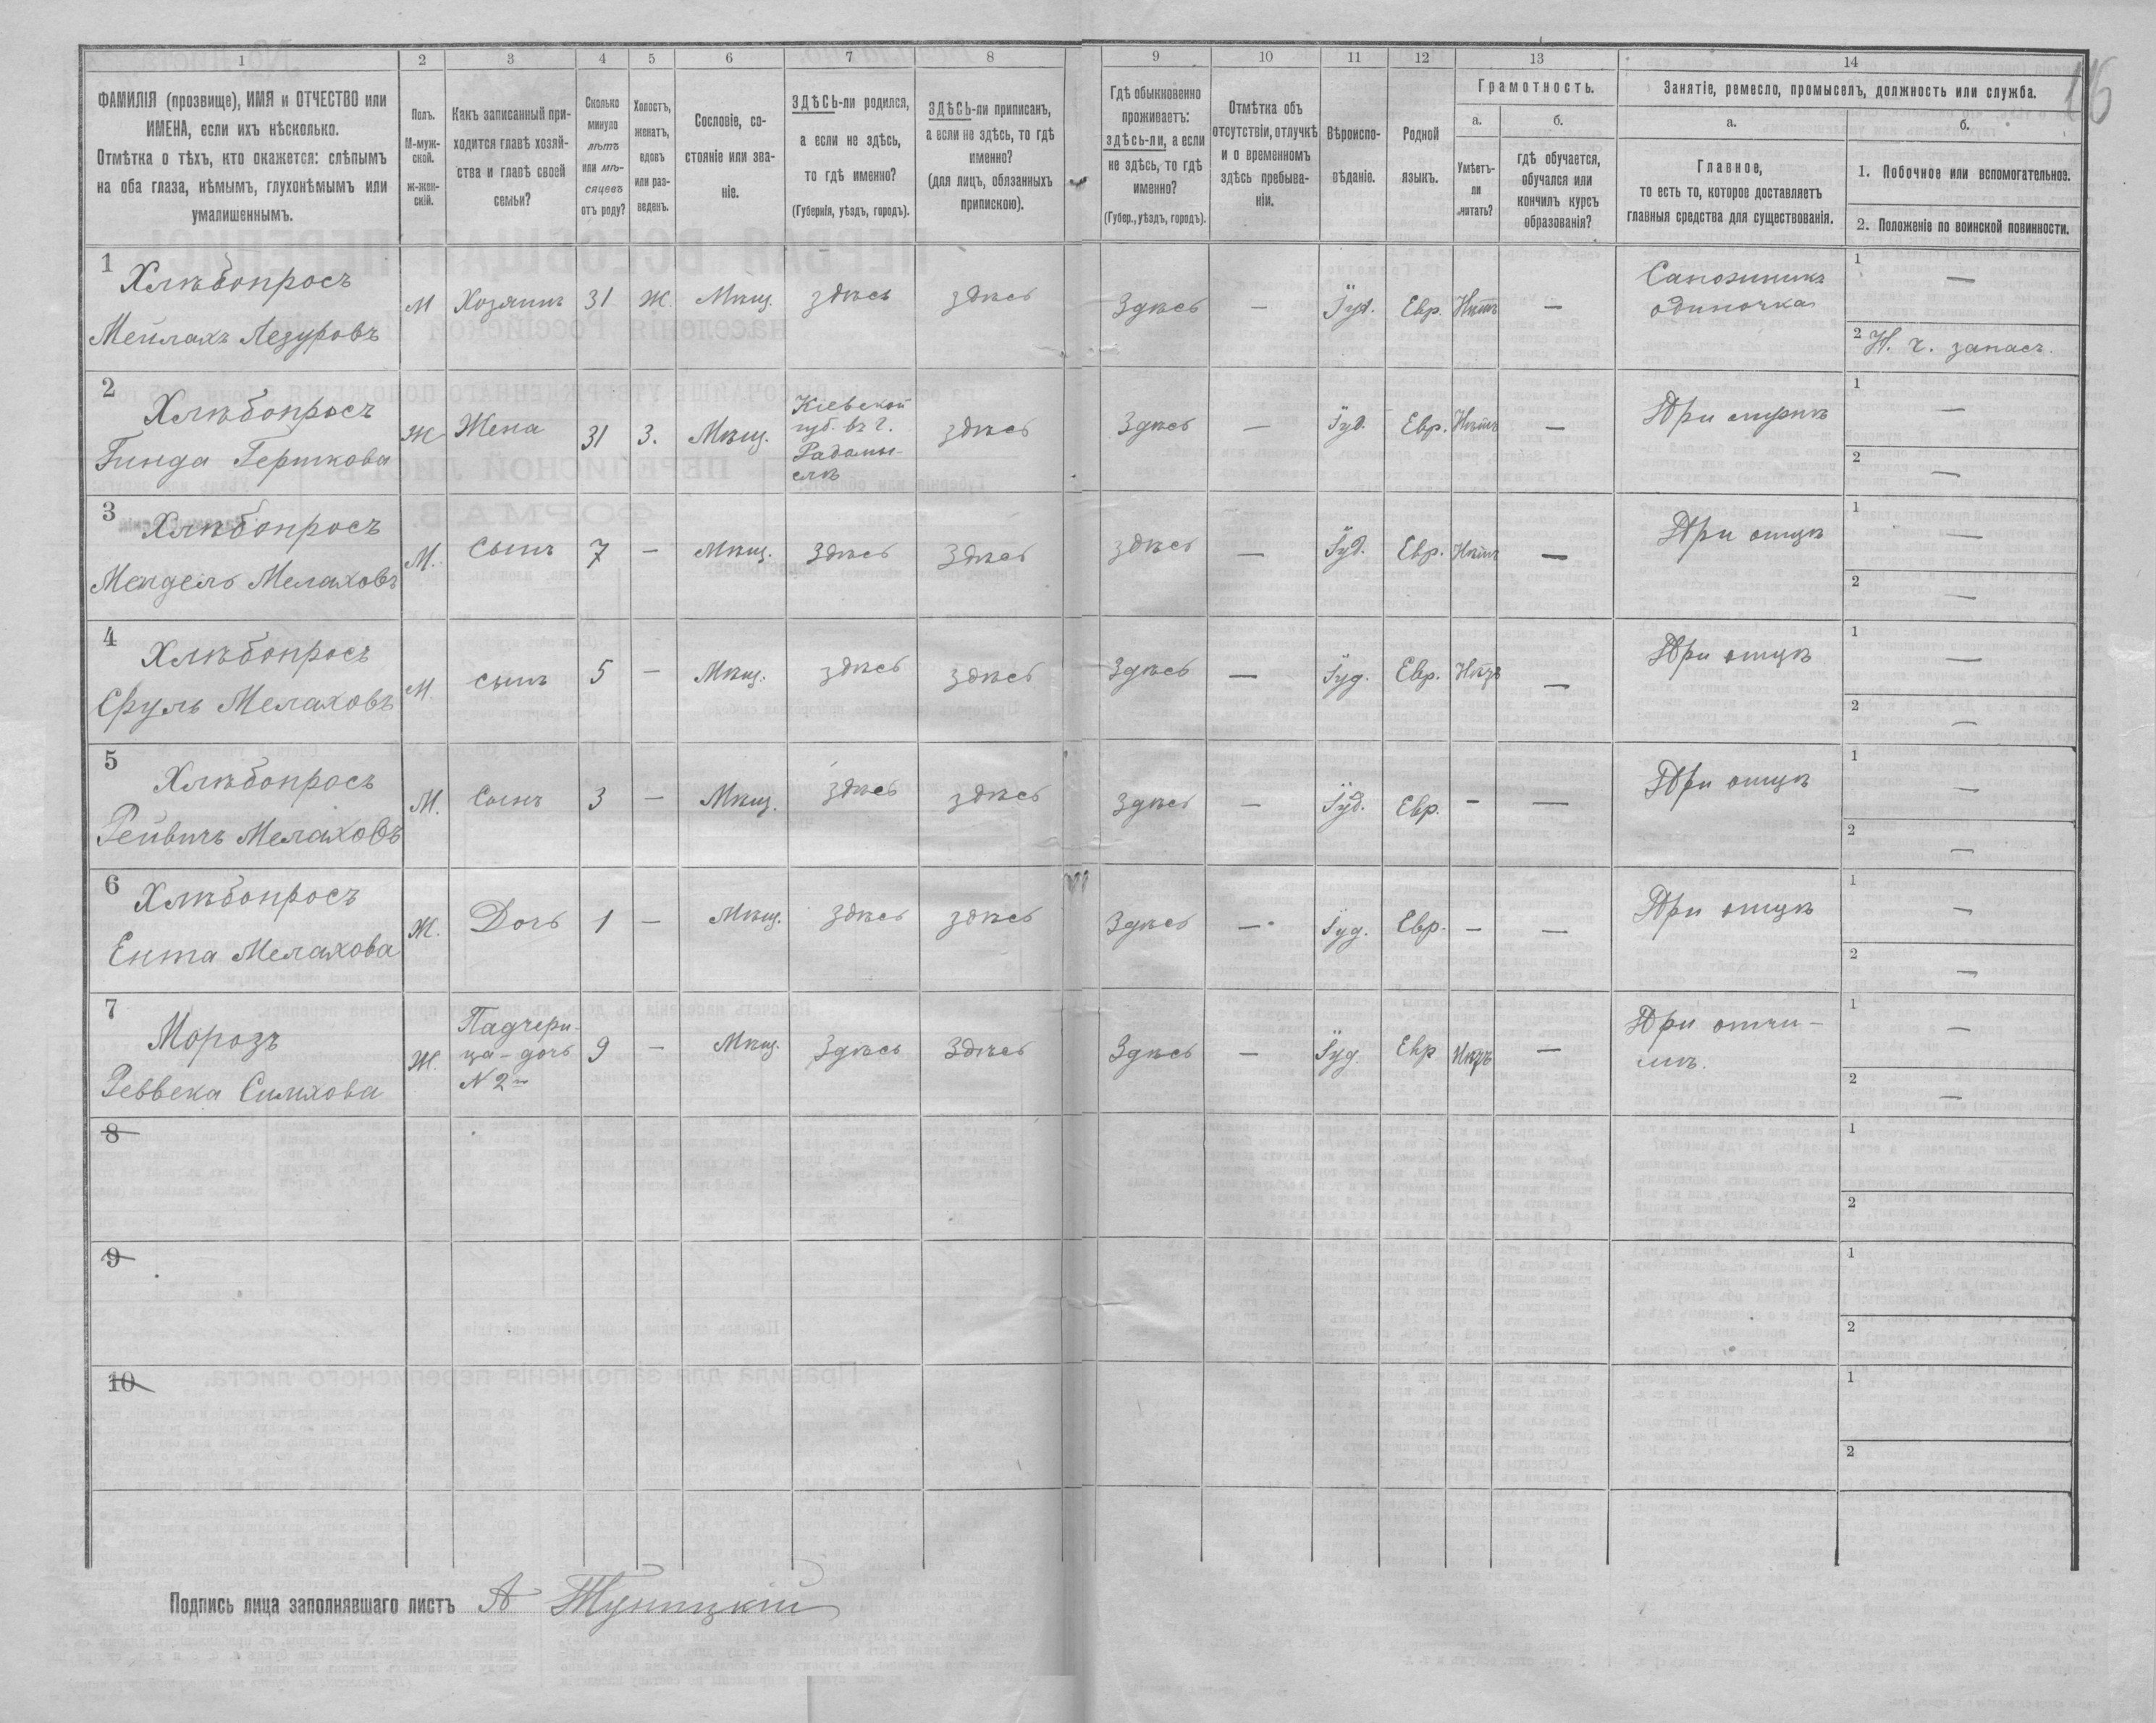 1 2 3 4 5 6 7 8 9 10 11 12 13 14
116
ФАМИЛІЯ (прозвище), ИМЯ и ОТЧЕСТВО или
ИМЕНА, если ихъ нѣсколько.
Отмѣтка о тѣхъ, кто окажется: слѣпымъ
на оба глаза, нѣмымъ, глухонѣмымъ или
умалишеннымъ.
Полъ.
М-муж-
ской.
ж-жен-
скій.
Какъ записанный при-
ходится главѣ хозяй-
ства и главѣ своей
семьи?
Сколько
минуло
лѣтъ
или мѣ-
сяцевъ
отъ роду?
Холостъ,
женатъ,
вдовъ
или раз-
веденъ.
Сословіе, со-
стояніе или зва-
ніе.
ЗДѢСЬ-ли родился,
а если не здѣсь,
то гдѣ именно?
(Губернія, уѣздъ, городъ).
ЗДѢСЬ-ли приписанъ,
а если не здѣсь, то гдѣ
именно?
(для лицъ, обязанныхъ
припискою).
Гдѣ обыкновенно
проживаетъ:
здѣсь-ли, а если
не здѣсь, то гдѣ
именно?
(Губер., уѣздъ, городъ).
Отмѣтка объ
отсутствіи, отлучкѣ
и о временномъ
здѣсь пребыва-
ніи.
Вѣроиспо-
вѣданіе.
Родной
языкъ.
Грамотность.
а.
Умѣетъ-
ли
читать?
б.
гдѣ обучается,
обучался или
кончилъ курсъ
образованія?
Занятіе, ремесло, промыселъ, должность или служба.
а.
Главное,
то есть то, которое доставляетъ
главныя средства для существованія.
б.
1. Побочное или вспомогательное.
2. Положеніе по воинской повинности.
1 Хлѣбопросъ
Мейлахъ Лезуровъ
М Хозяинъ 31 Ж. Мѣщ. здѣсь здѣсь Здѣсь — Іуд. Евр. Нѣтъ —
Сапожникъ
одиночка
1 —
2 Н. ч. запасъ.
2 Хлѣбопросъ
Гинда Гершкова
Ж Жена 31 З. Мѣщ.
Кіевской
губ. въ г.
Радомы-
слѣ
здѣсь Здѣсь — Іуд. Евр. Нѣтъ — При мужѣ
1 —
2 —
3 Хлѣбопросъ
Мендель Мелаховъ
М. Сынъ 7 — Мѣщ. Здѣсь Здѣсь здѣсь — Іуд. Евр. Нѣтъ — При отцѣ
1 —
2 —
4 Хлѣбопросъ
Сруль Мелаховъ
М. сынъ 5 — Мѣщ. здѣсь здѣсь Здѣсь — Іуд. Евр. Нѣтъ — При отцѣ
1 —
2 —
5 Хлѣбопросъ
Рейвичъ Мелаховъ
М. Сынъ 3 — Мѣщ. здѣсь здѣсь Здѣсь — Іуд. Евр. — — При отцѣ
1 —
2 —
6 Хлѣбопросъ
Ента Мелахова
Ж. Дочь 1 — Мѣщ. здѣсь здѣсь Здѣсь — Іуд. Евр. — — При отцѣ
1 —
2 —
7 Морозъ
Реввека Симхова
Ж.
Падчери-
ца – дочь
№ 2го
9 — Мѣщ. Здѣсь Здѣсь Здѣсь — Іуд. Евр Нѣтъ —
При отчи-
мѣ.
1 —
2 —
8
1
2
9
1
2
10
1
2
Подпись лица заполнявшаго листъ А Туницкій